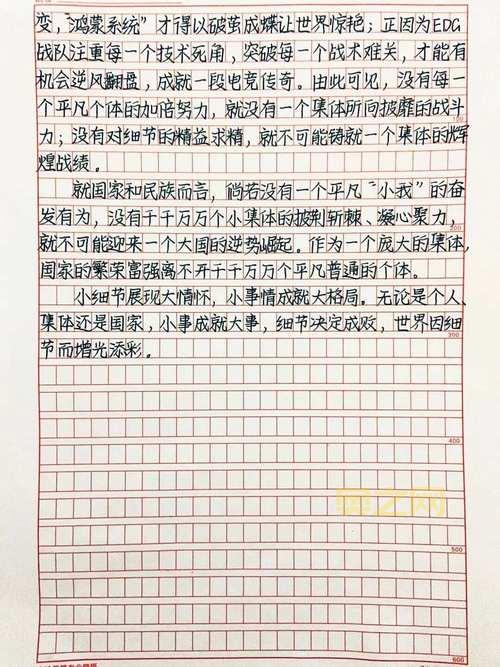 变，“鸿蒙系统”才得以破茧成蝶让世界惊艳；正因为EDG
战队注重每一个技术死角，突破每一个战术难关，才能有
机会逆风翻盘，成就一段电竞传奇。由此可见，没有每一
个平凡个体的加倍努力，就没有一个集体所向披靡的战斗
100
力；没有对细节的精益求精，就不可能铸就一个集体的辉
煌战绩。
就国家和民族而言，倘若没有一个平凡“小我”的奋
发有为，没有千千万万个小集体的披荆斩棘、凝心聚力，
200
就不可能迎来一个大国的逆势崛起。作为一个庞大的集体，
国家的繁荣富强离不开千千万万个平凡普通的个体。
小细节展现大情怀，小事情成就大格局。无论是个人、
集体还是国家，小事成就大事，细节决定成败，世界因细
300
节而增光添彩。
400
500
600